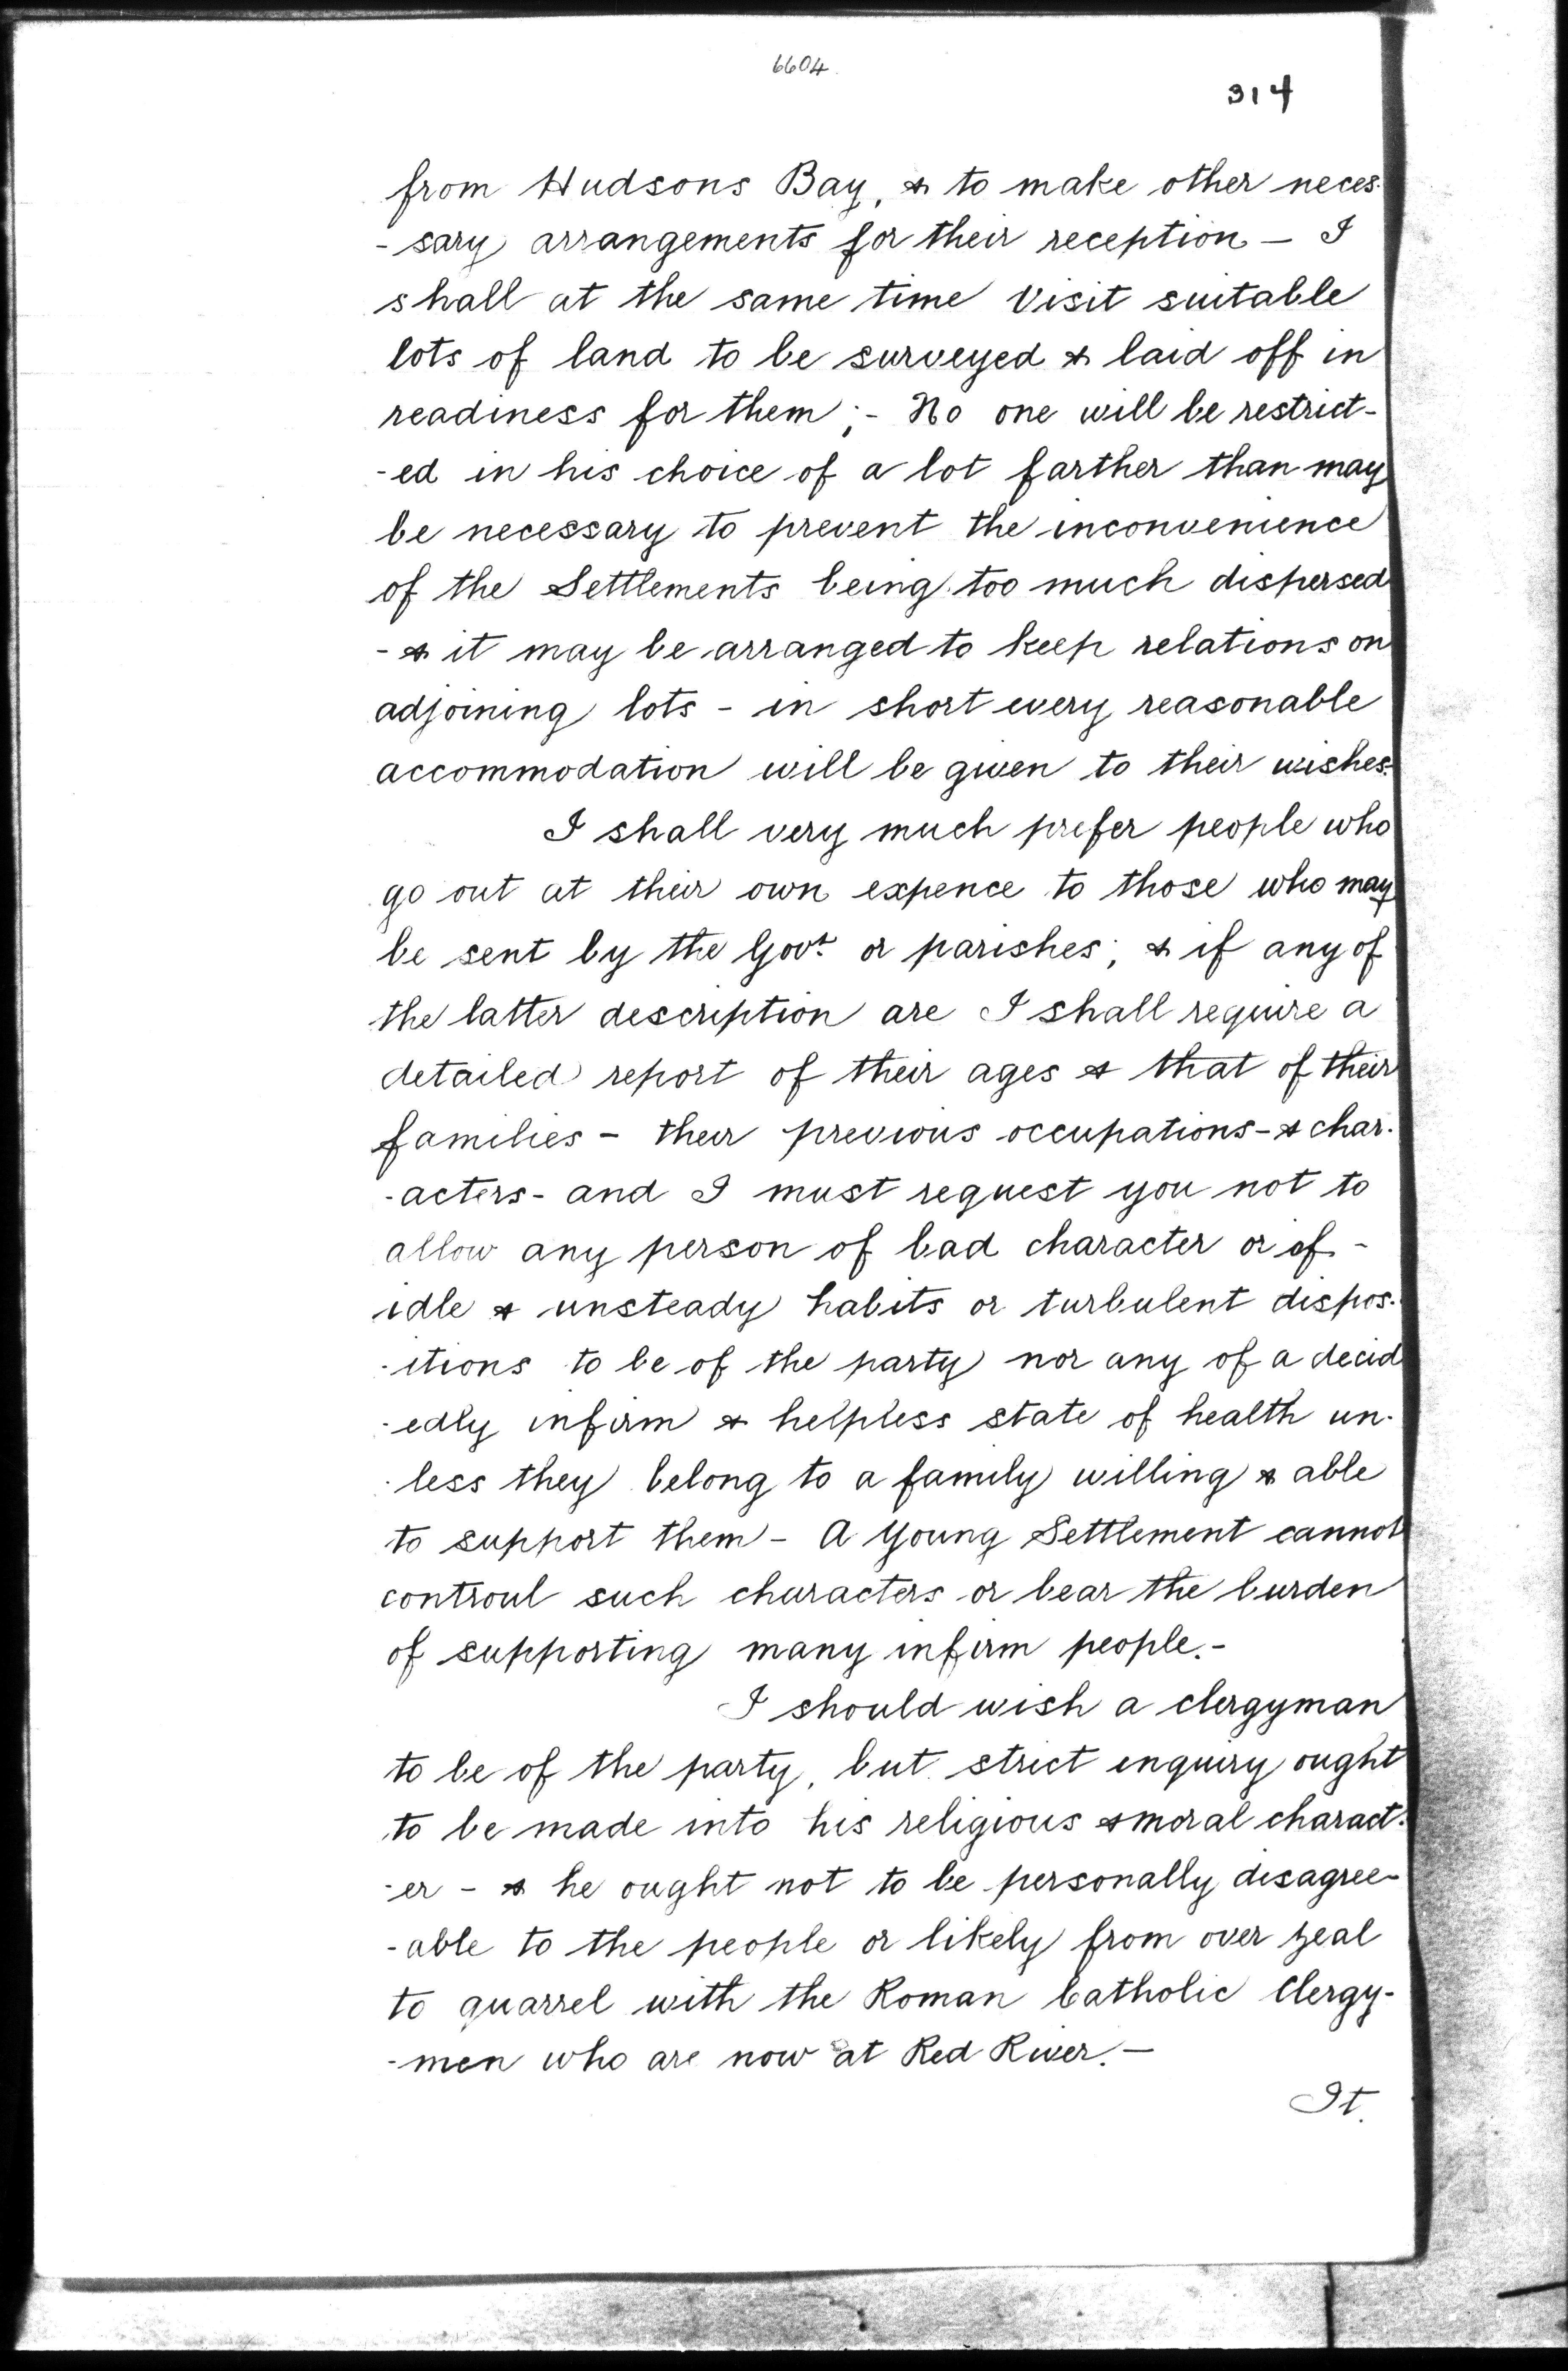 6604
314
from Hudsons Bay, & to make other neces-
-sary arrangements for their reception - I
shall at the same time Visit suitable
lots of land to be surveyed & laid off in
readiness for them ;- No one will be restrict-
-ed in his choice of a lot farther than may
be necessary to prevent the inconvenience
of the Settlements being too much dispersed
- & it may be arranged to keep relations on
adjoining lots - in short every reasonable
accommodation will be given to their wishes.
I shall very much prefer people who
go out at their own expence to those who may
be sent by the Govt. or parishes; & if any of
the latter description are I shall require a
detailed report of their ages & that of their
families - their previous occupations - & char-
-acters - and I must request you not to
allow any person of bad character or of -
idle & unsteady habits or turbulent dispos-
-itions to be of the party nor any of a decid
-edly infirm & helpless state of health un-
-less they belong to a family willing & able
to support them - A Young Settlement cannot
controul such characters or bear the burden
of supporting many infirm people. -
I should wish a clergyman
to be of the party, but strict enquiry ought
to be made into his religious & moral charact-
-er - & he ought not to be personally disagree-
-able to the people or likely from over zeal
to quarrel with the Roman Catholic Clergy-
-men who are now at Red River. -
It.